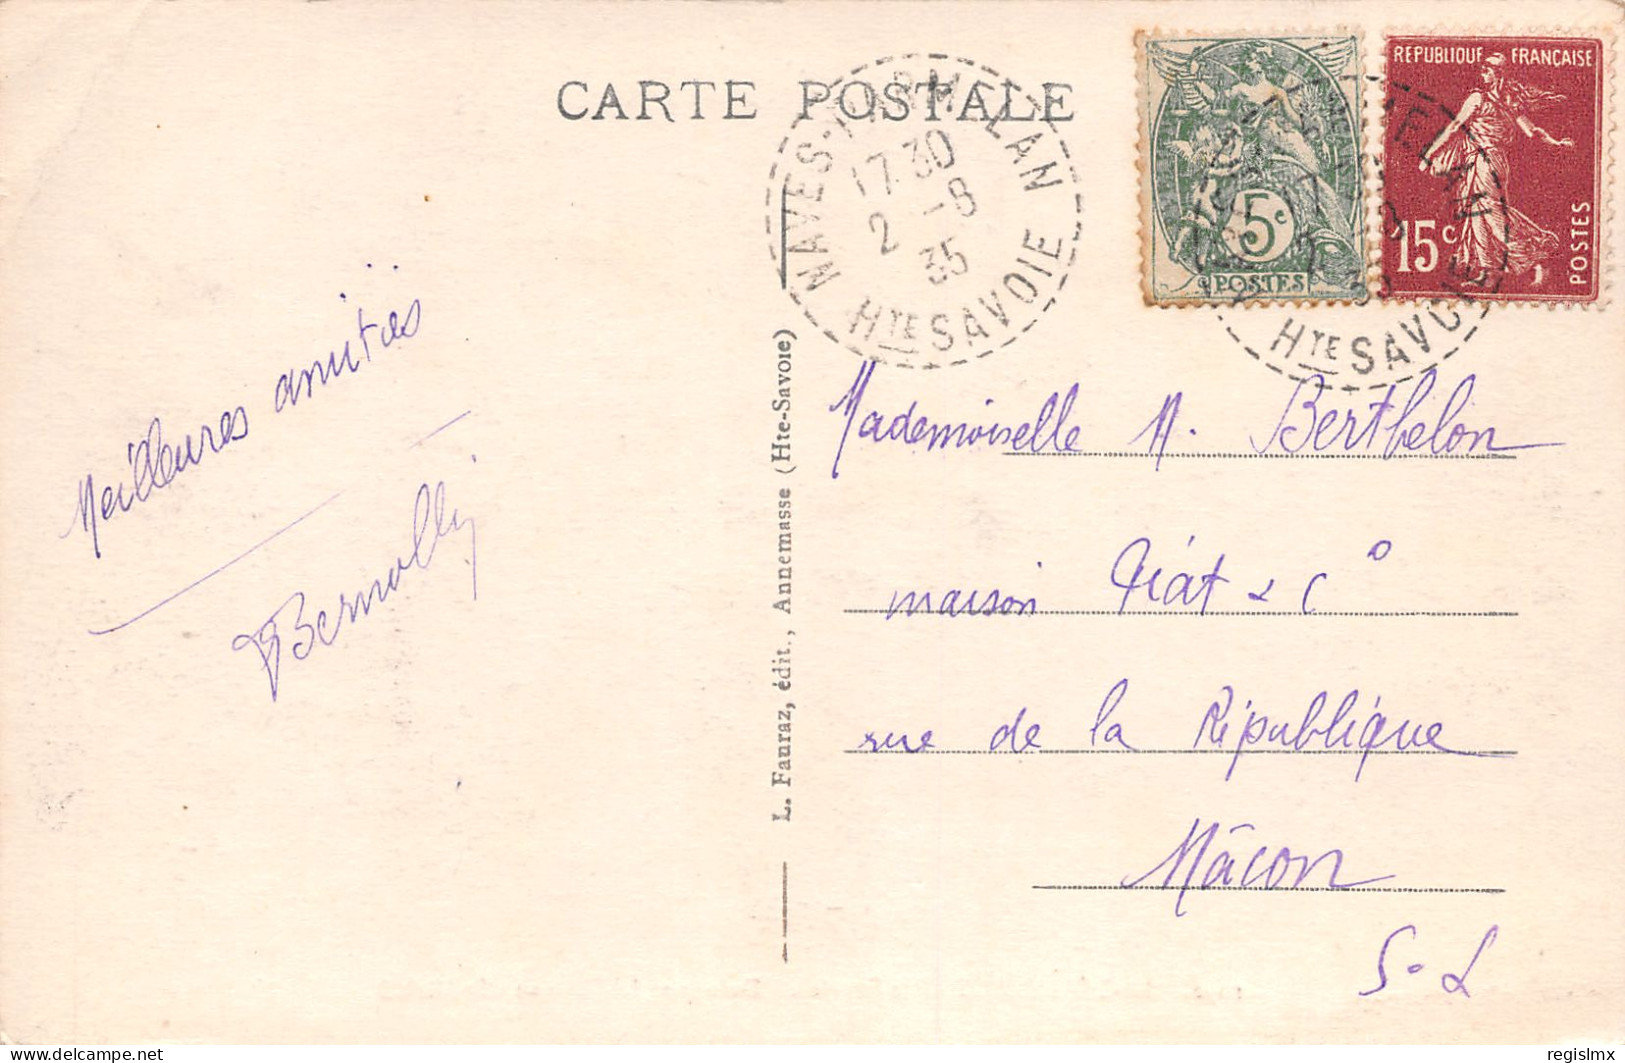 CARTE POSTALE
NAVES-PARMELAN
17 30
2 -8
35
HTE SAVOIE
5c
POSTES
REPUBLIQUE FRANÇAISE
15c
POSTES
HTE SAVOIE
Meilleures amitiés
L. Fauraz, édit., Annemasse (Hte-Savoie)
Mademoiselle M. Berthelon
maison & Co
rue de la République
Mâcon
S-L
delcampe.net
regislmx